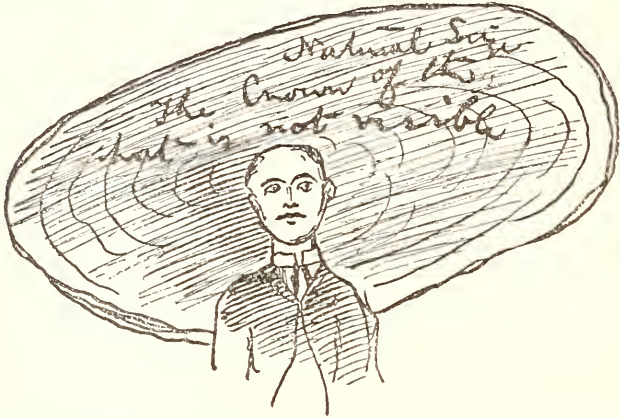 Natural
The Crown of the
what is not visible